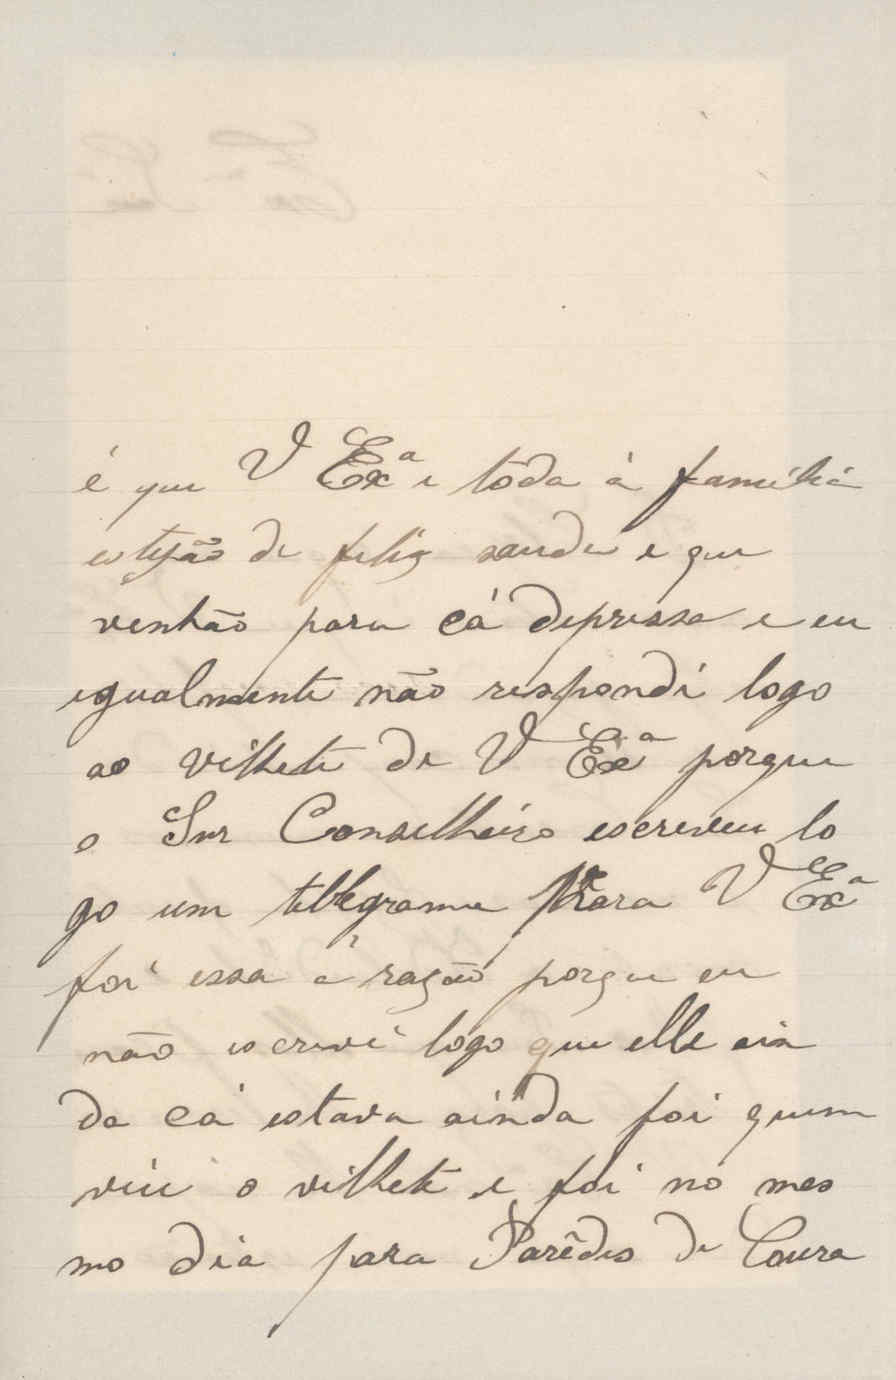 é que V Exª e tôda á familia
estejão de feliz saude e que
venhão para cá depressa e eu
igualmente não respondi logo
ao vilhete de V Exª porque
o Snr Conselheiro escreveu lo
go um tellegrama para V Exª
foi essa a ração porque eu
não escrevi logo que elle ain
da cá estava ainda foi quem
viu o vilhete e foi no mes
mo dia para Parêdes de Coura